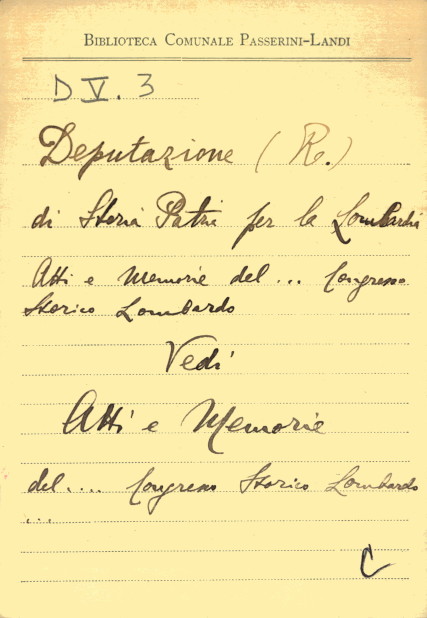 BIBLIOTECA COMUNALE PASSERINI-LANDI
D V. 3
Deputazione (R.)
di Storia Patria per la Lombardia
Atti e Memorie del ... Congresso
Storico Lombardo
Vedi
Atti e Memorie
del .... Congresso Storico Lombardo
...
C